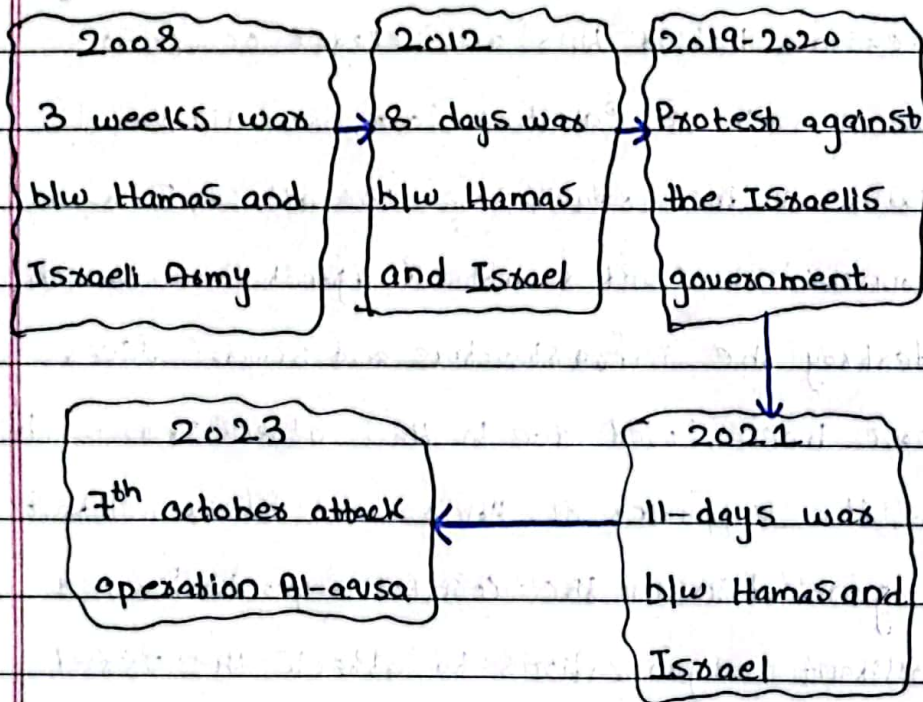 2008
3 weeks war
b/w Hamas and
Israeli Army
2012
8 days war
b/w Hamas
and Israel
2019-2020
Protest against
the Israelis
government
2021
11-days war
b/w Hamas and
Israel
2023
7th october attack
operation Al-aqsa